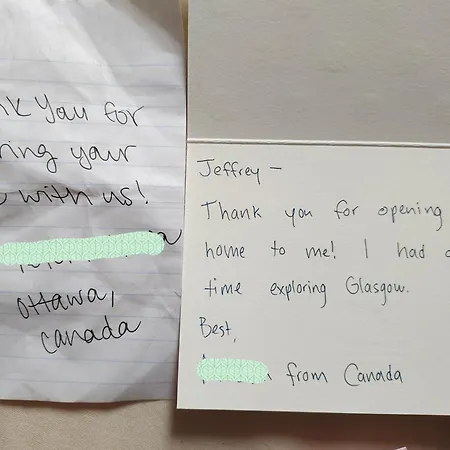 nk you for
ring your
with us!
ottawa,
canada
Jeffrey -
Thank you for opening
home to me! I had a
time exploring Glasgow.
Best,
from Canada